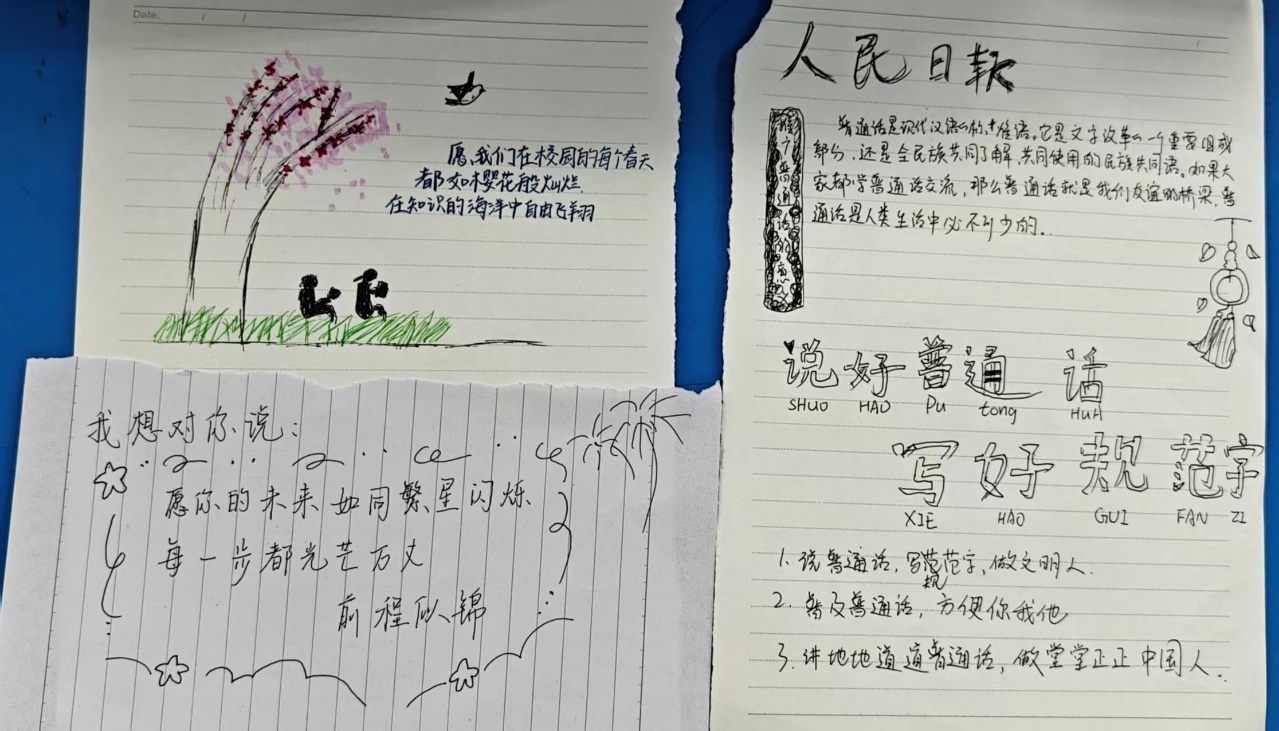 Date. / /
愿我们在校园的每个春天
都如樱花般灿烂
在知识的海洋中自由飞翔
我想对你说:
愿你的未来如同繁星闪烁
每一步都光芒万丈
前程似锦
人民日报
推广普通话的意义
普通话是现代汉语的标准语。它是文字改革的一个重要组成
部分,还是全民族共同了解、共同使用的民族共同语。如果大
家都学普通话交流,那么普通话就是我们友谊的桥梁,普
通话是人类生活中必不可少的..
说好普通话
SHUO HAO Pu tong HUA
写好规范字
XIE HAO GUI FAN ZI
1. 说普通话,写规范字,做文明人.
2. 普及普通话,方便你我他
3. 讲地地道道普通话,做堂堂正正中国人..